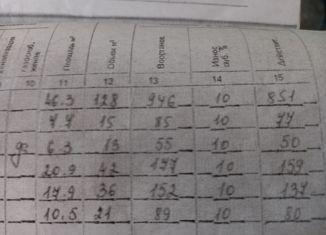 Площадь м² Объем м³
10 11 12 13 14 15
46.3 128 946 10 851
7.7 15 85 10 77
6.3 13 55 10 50
20.9 42 177 10 159
17.9 36 152 10 137
10.5 21 89 10 80